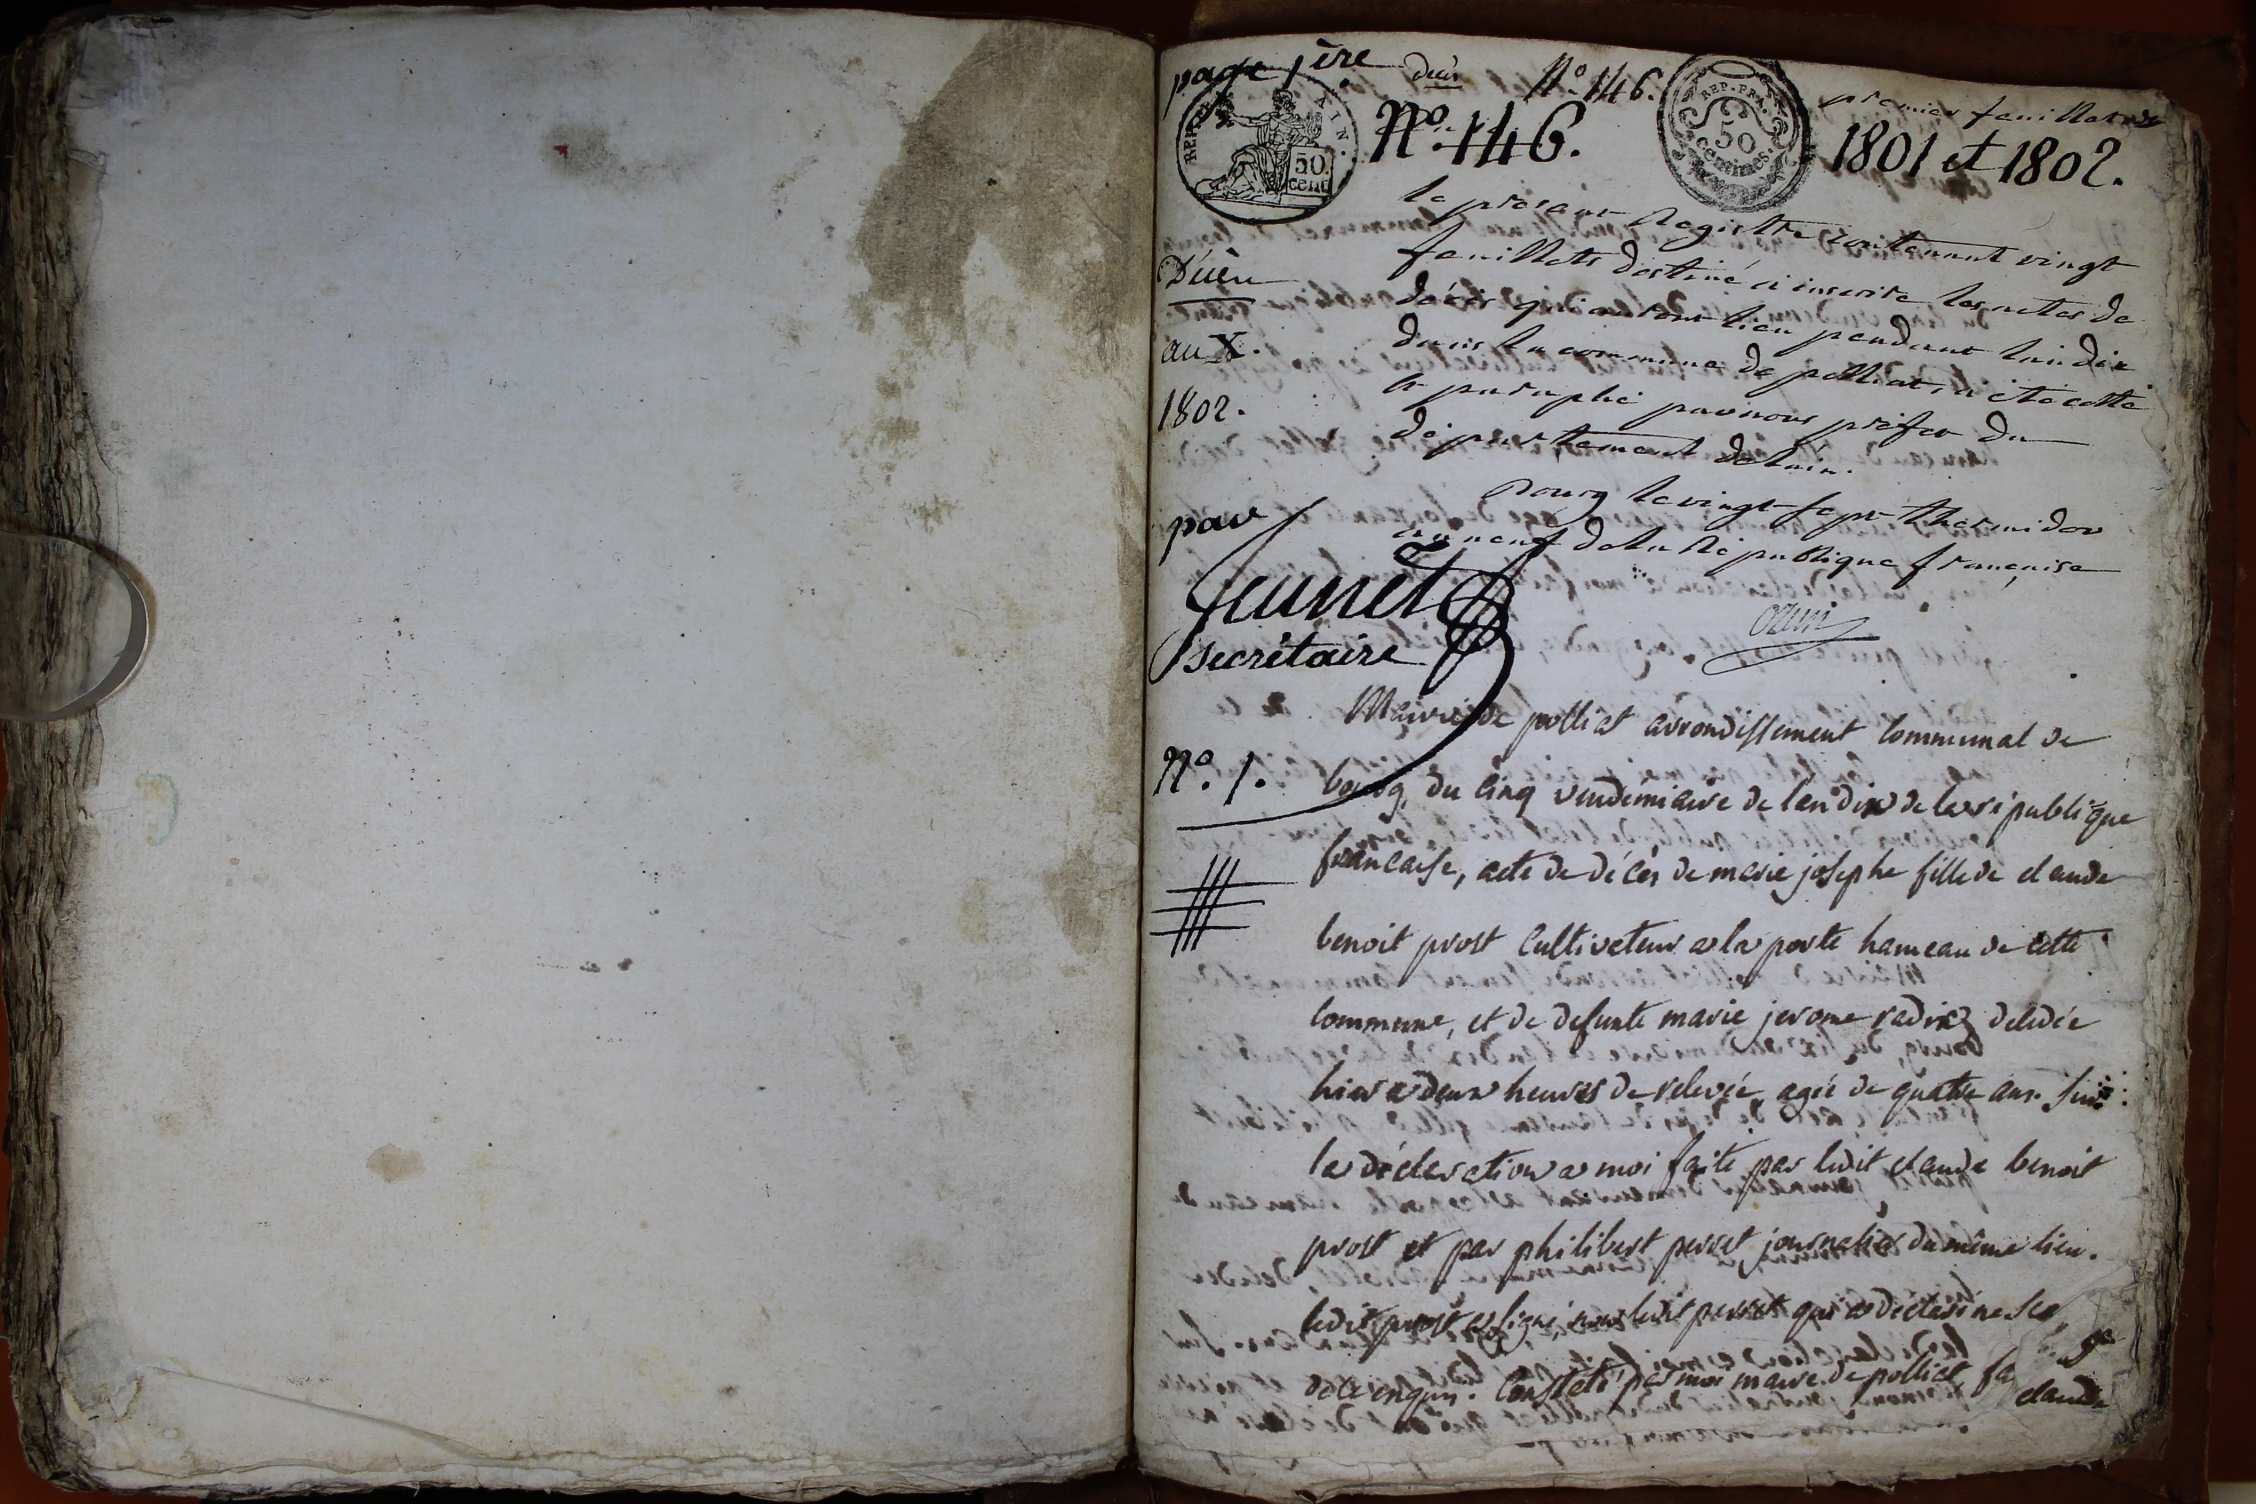 page 1ère
décès
N° 146.
premier feuillet
REP. FRA.
50
centimes.
50
cent
N° 146.
1801 et 1802.
le présent Registre contenant vingt
feuillets destiné à inscrire les actes de
décès qui auront lieu pendant l'an dix
dans la commune de polliat, a été cotté
et paraphé par nous préfet du
département de l'ain.
Bourg le vingt-sept thermidor
an neuf de la République française
ozun
Décès
an X.
1802.
par
Jeunet
secrétaire
N°. 1.
Mairie de polliat arrondissement communal de
bourg, du cinq vendémiaire de l'an dix de la république
francaise, acte de décès de marie josephe fille de claude
benoit prost cultivateur a la poste hameau de cette
commune, et de defunte marie jerome radix décédée
hier a deux heures de relevée, agée de quatre ans. sur
la déclaration a moi faite par ledit claude benoit
prost et par philibert perret journalier du même lieu.
ledit prost a signé, non ledit perret qui a déclaré ne
de ce enquis. Constaté par moi maire de polliat, fa
claude